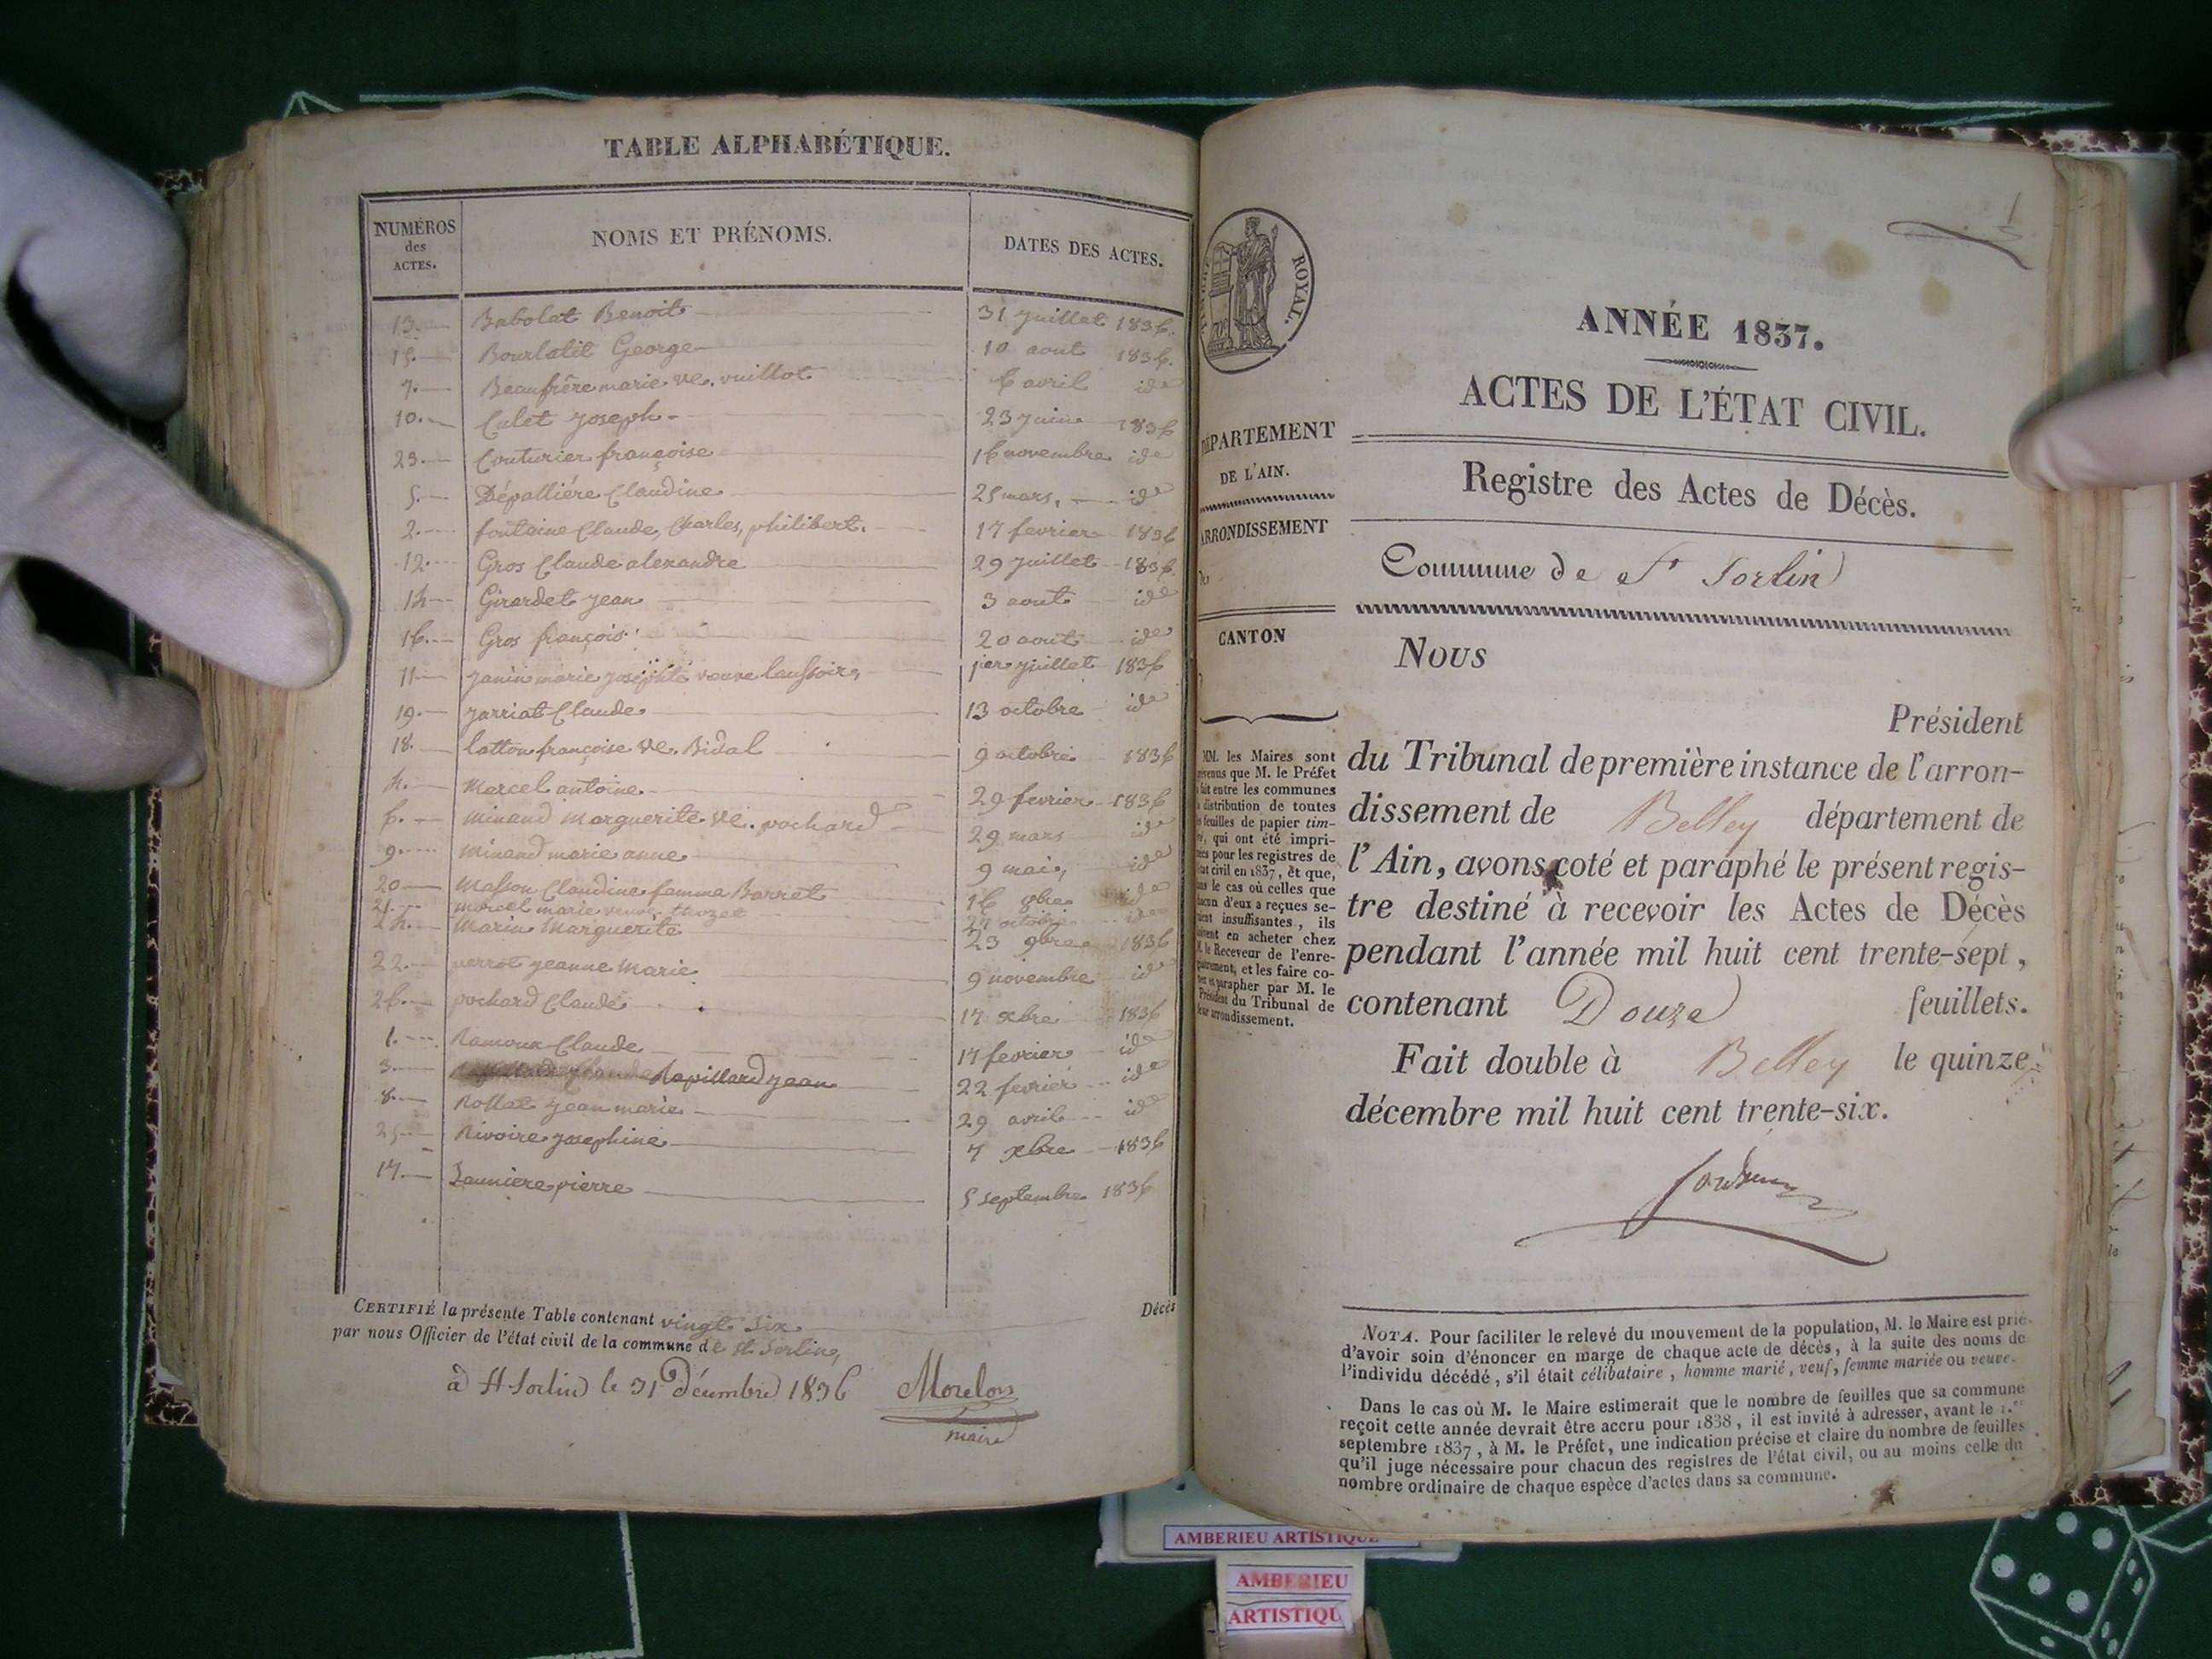 TABLE ALPHABÉTIQUE.
NUMÉROS des ACTES. NOMS ET PRÉNOMS. DATES DES ACTES.
13. Babolat Benoit 31 juillet 1836.
15. Bourlatit George 10 aout 1836.
7. Beaufrère marie ve. vuillot 6 avril ide
10. Culet joseph 23 juin 1836
23. Couturier françoise 16 novembre ide
5. Dépalliére Claudine 25 mars, ide
2. fontaine Claude, Charles, philibert. 17 fevrier 1836
12. Gros Claude alexandre 29 juillet 1836
14 Girardet jean 3 aout ide
16. Gros françois 20 aout ide
11 janin marie josephte veuve 1er juillet 1836
19. jarriat Claude 13 octobre ide
18. latton françoise ve. Bidal 9 octobre 1836
4. Marcel antoine 29 fevrier 1836
6. Minand Marguerite ve. pochard 29 mars ide
9. Minand marie anne 9 mai, ide
20 Masson Claudine femme Barret 16 8bre ide
21. marcel marie veuve thozet 27 octobre ide
24. Marin Marguerite 23 9bre 1836
22. perrot jeanne Marie 9 novembre ide
26. pochard Claude 17 xbre 1836
1. Ramoux Claude 17 fevrier ide
3. Rapillard jean 22 fevrier ide
8. Rollat jean marie 29 avril ide
25. Rivoire josephine 7 xbre 1836
17. Sauniere pierre 5 septembre 1836
CERTIFIÉ la présente Table contenant vingt Six Décès
par nous Officier de l'état civil de la commune de st Sorlin,
à St Sorlin le 31 décembre 1836 Morelon
maire
ROYAL.
ANNÉE 1837.
ACTES DE L'ÉTAT CIVIL.
DÉPARTEMENT
DE L'AIN.
ARRONDISSEMENT
CANTON
Registre des Actes de Décès.
Commune de St Sorlin
Nous
Président
du Tribunal de première instance de l'arron-
dissement de Belley département de
l'Ain, avons coté et paraphé le présent regis-
tre destiné à recevoir les Actes de Décès
pendant l'année mil huit cent trente-sept,
contenant Douze feuillets.
Fait double à Belley le quinze
décembre mil huit cent trente-six.
MM. les Maires sont
prévenus que M. le Préfet
fait entre les communes
la distribution de toutes
les feuilles de papier tim-
bré, qui ont été impri-
mées pour les registres de
l'état civil en 1837, et que,
dans le cas où celles que
chacun d'eux a reçues se-
raient insuffisantes, ils
doivent en acheter chez
M. le Receveur de l'enre-
gistrement, et les faire co-
ter et parapher par M. le
Président du Tribunal de
leur arrondissement.
NOTA. Pour faciliter le relevé du mouvement de la population, M. le Maire est prié
d'avoir soin d'énoncer en marge de chaque acte de décès, à la suite des noms de
l'individu décédé, s'il était célibataire, homme marié, veuf, femme mariée ou veuve.
Dans le cas où M. le Maire estimerait que le nombre de feuilles que sa commune
reçoit cette année devrait être accru pour 1838, il est invité à adresser, avant le 1.er
septembre 1837, à M. le Préfet, une indication précise et claire du nombre de feuilles
qu'il juge nécessaire pour chacun des registres de l'état civil, ou au moins celle du
nombre ordinaire de chaque espèce d'actes dans sa commune.
AMBERIEU ARTISTIQUE
AMBERIEU
ARTISTIQU